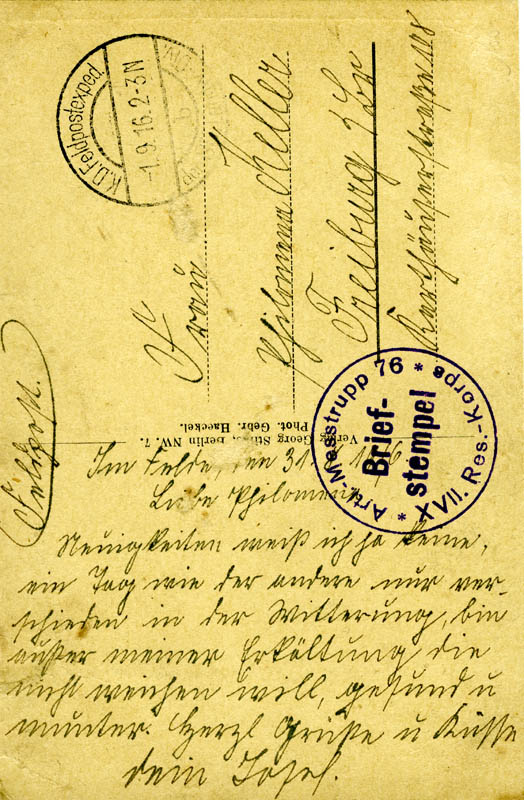 K.D.Feldpostexped.
-1.9.16.2-3N
Frau
Philomena Keller
Freiburg i/Br
Karthäuserstraße 108
Feldpost.
Verlag Georg Stilke, Berlin NW. 7.
Phot. Gebr. Haeckel.
Art.-Messtrupp 76
Brief-
stempel
* XVII. Res.-Korps *
Im Felde, den 31.
Liebe Philomena
Neuigkeiten weiß ich ja keine,
ein Tag wie der andere nur ver-
schieden in der Witterung, bin
außer meiner Erkältung die
nicht weichen will, gesund u
munter. Herzl Grüße u Küsse
dein Josef.